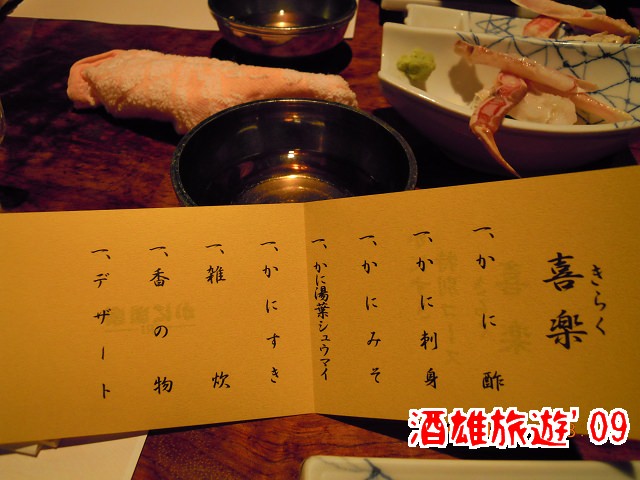 きらく
喜楽
一、かに酢
一、かに刺身
一、かにみそ
一、かに湯葉シュウマイ
一、かにすき
一、雑炊
一、香の物
一、デザート
酒雄旅遊'09